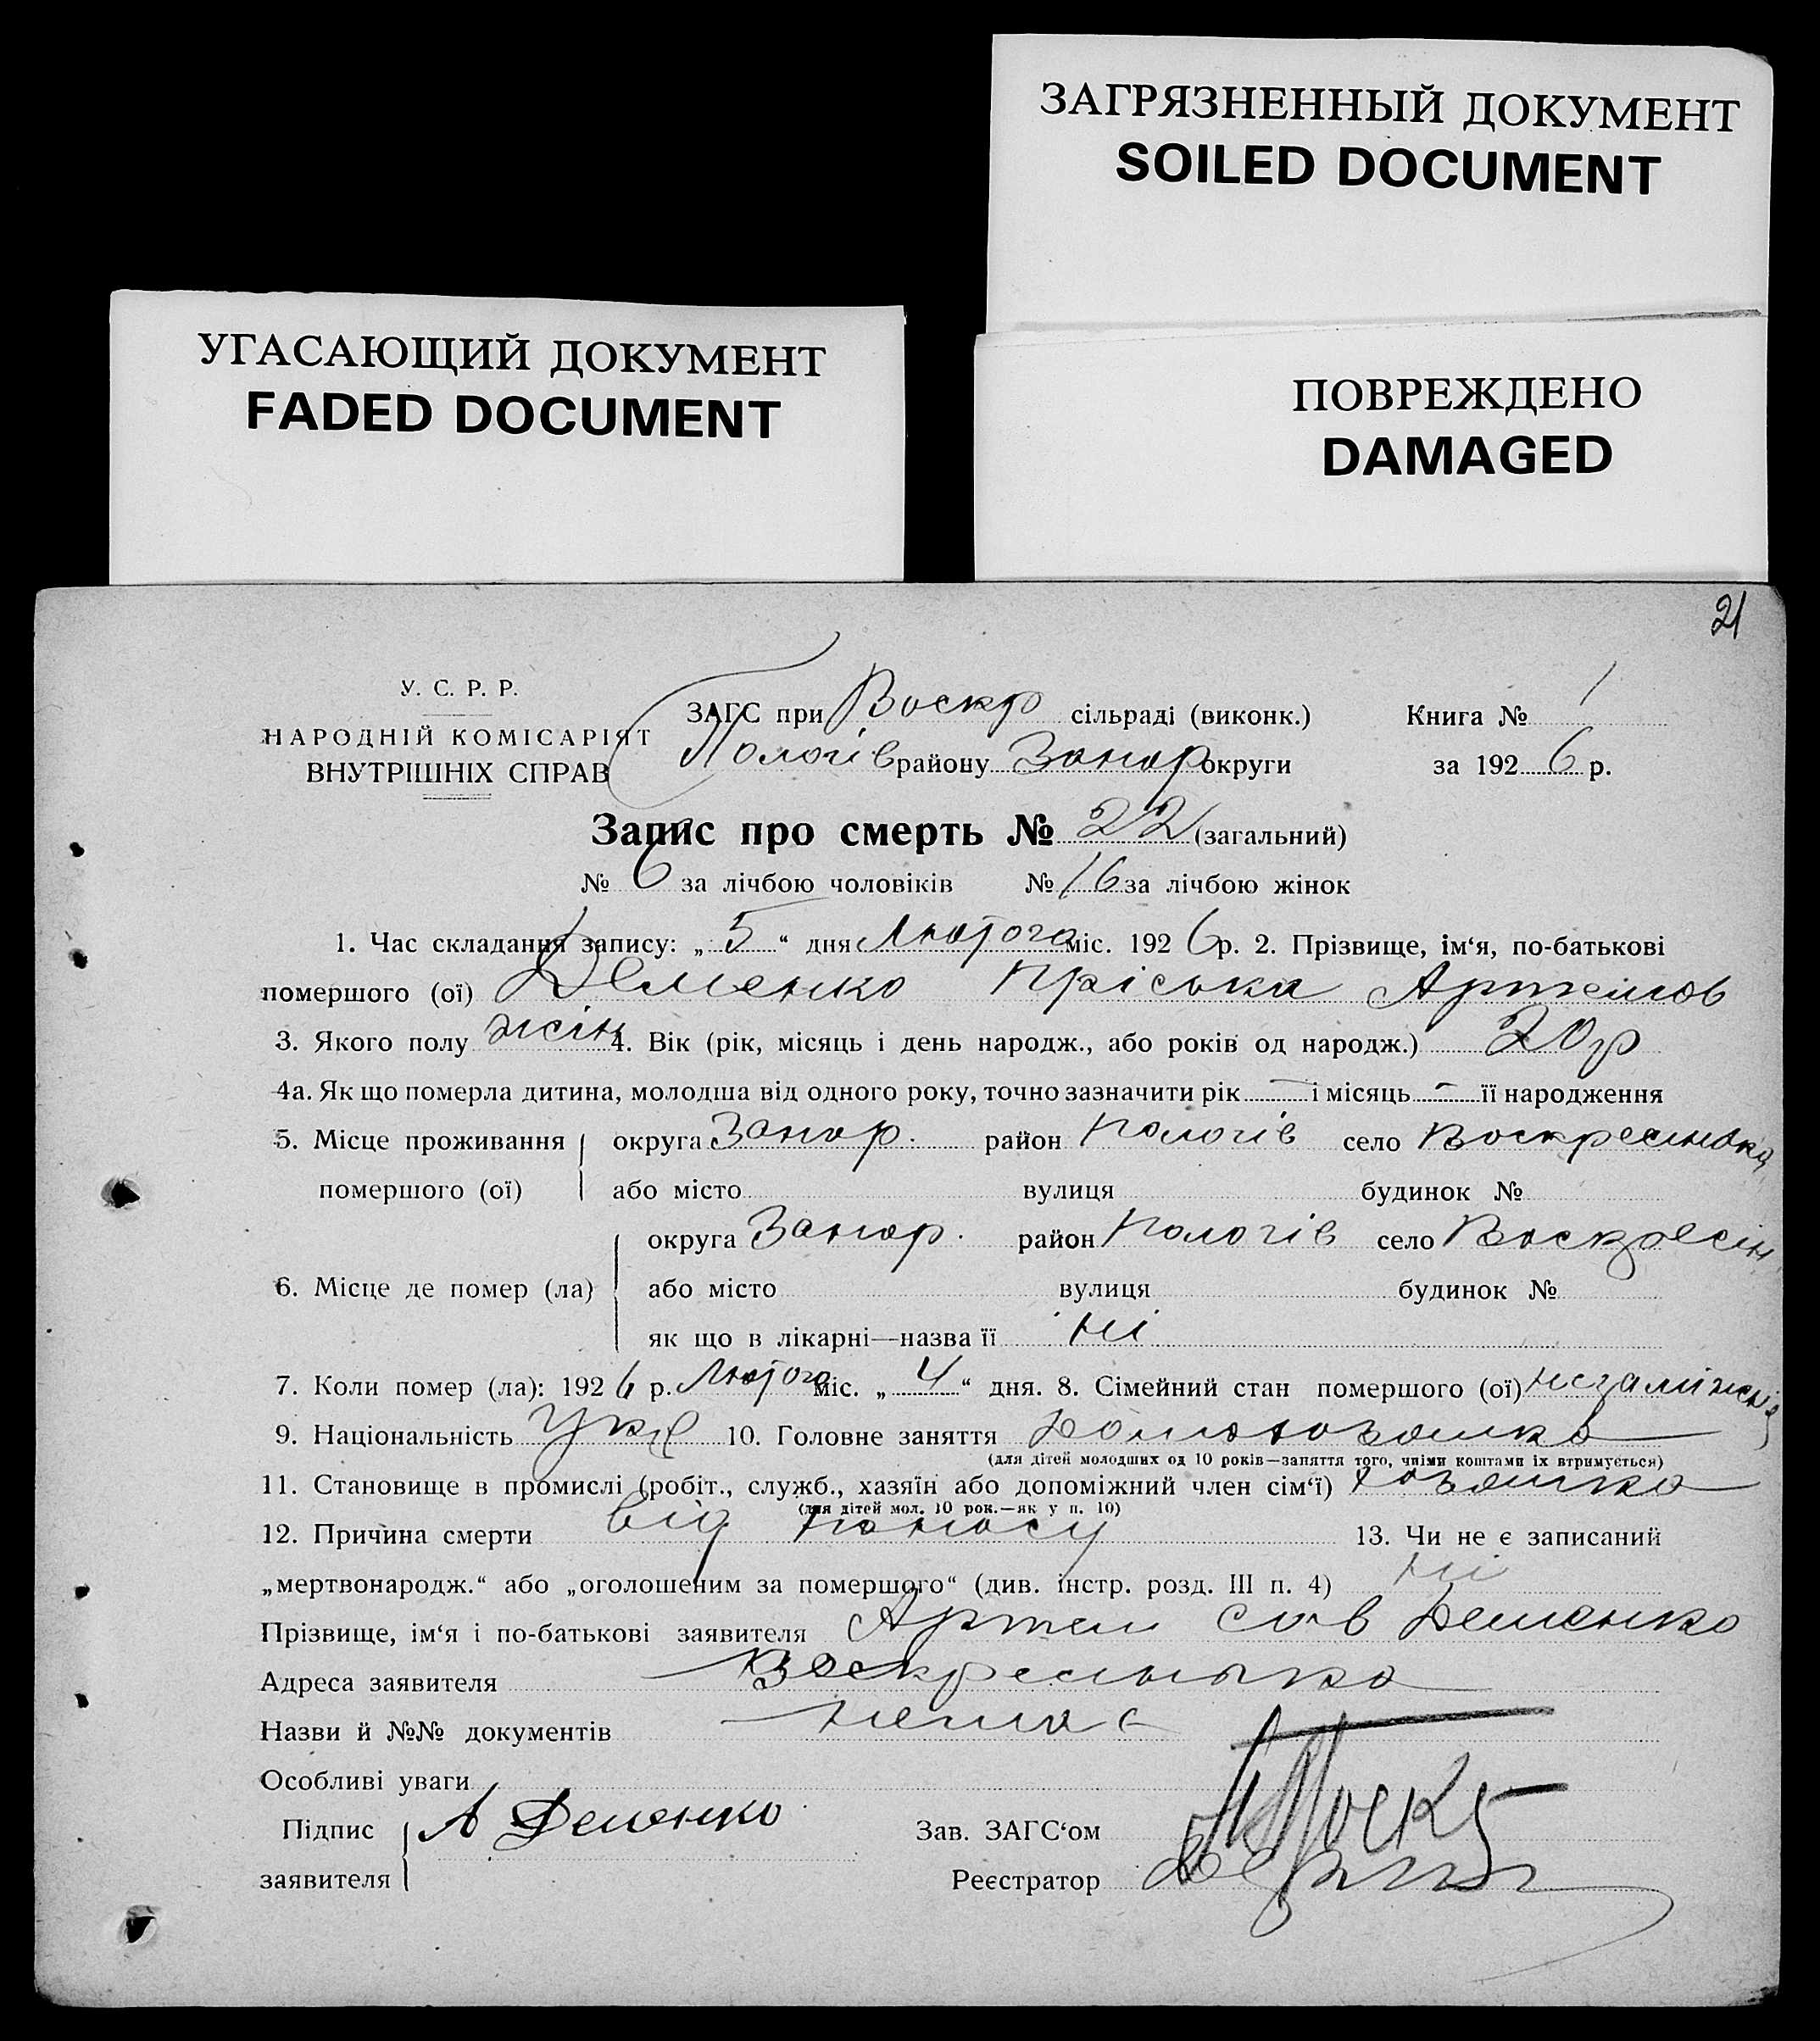 ЗАГРЯЗНЕННЫЙ ДОКУМЕНТ
SOILED DOCUMENT
УГАСАЮЩИЙ ДОКУМЕНТ
FADED DOCUMENT
ПОВРЕЖДЕНО
DAMAGED
21
У. С. Р. Р.
НАРОДНІЙ КОМІСАРІЯТ
ВНУТРІШНІХ СПРАВ
ЗАГС при Воскр сільраді (виконк.) Книга № 1
Пологів району Запор округи за 1926 р.
Запис про смерть № 22 (загальний)
№ 6 за лічбою чоловіків № 16 за лічбою жінок
1. Час складання запису: „5“ дня Лютого міс. 1926 р. 2. Прізвище, ім‘я, по-батькові
помершого (ої) Деменко Пріська Артемов
3. Якого полу жін 4. Вік (рік, місяць і день народж., або років од народж.) 20 р
4а. Як що померла дитина, молодша від одного року, точно зазначити рік — і місяць — її народження
5. Місце проживання округа Запор. район Пологів село Воскресиновка
помершого (ої) або місто вулиця будинок №
округа Запор. район Пологів село Воскресін
6. Місце де помер (ла) або місто вулиця будинок №
як що в лікарні—назва її ні
7. Коли помер (ла): 1926 р. Лютого міс. „4“ дня. 8. Сімейний стан помершого (ої) незаміжня
9. Національність Укр 10. Головне заняття
(для дітей молодших од 10 років—заняття того, чиїми коштами їх втримується)
11. Становище в промислі (робіт., служб., хазяїн або допоміжний член сім‘ї)
(для дітей мол. 10 рок.—як у п. 10)
12. Причина смерти від поносу 13. Чи не є записаний
„мертвонародж.“ або „оголошеним за помершого“ (див. інстр. розд. III п. 4) ні
Прізвище, ім‘я і по-батькові заявителя Артем Деменко
Адреса заявителя
Назви й №№ документів немає
Особливі уваги
Підпис А Деменко Зав. ЗАГС‘ом
заявителя Реєстратор